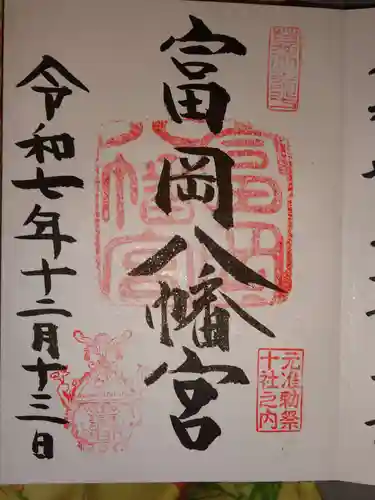 富岡八幡宮
令和七年十二月十三日
富岡八幡宮
元准勅祭
十社之内